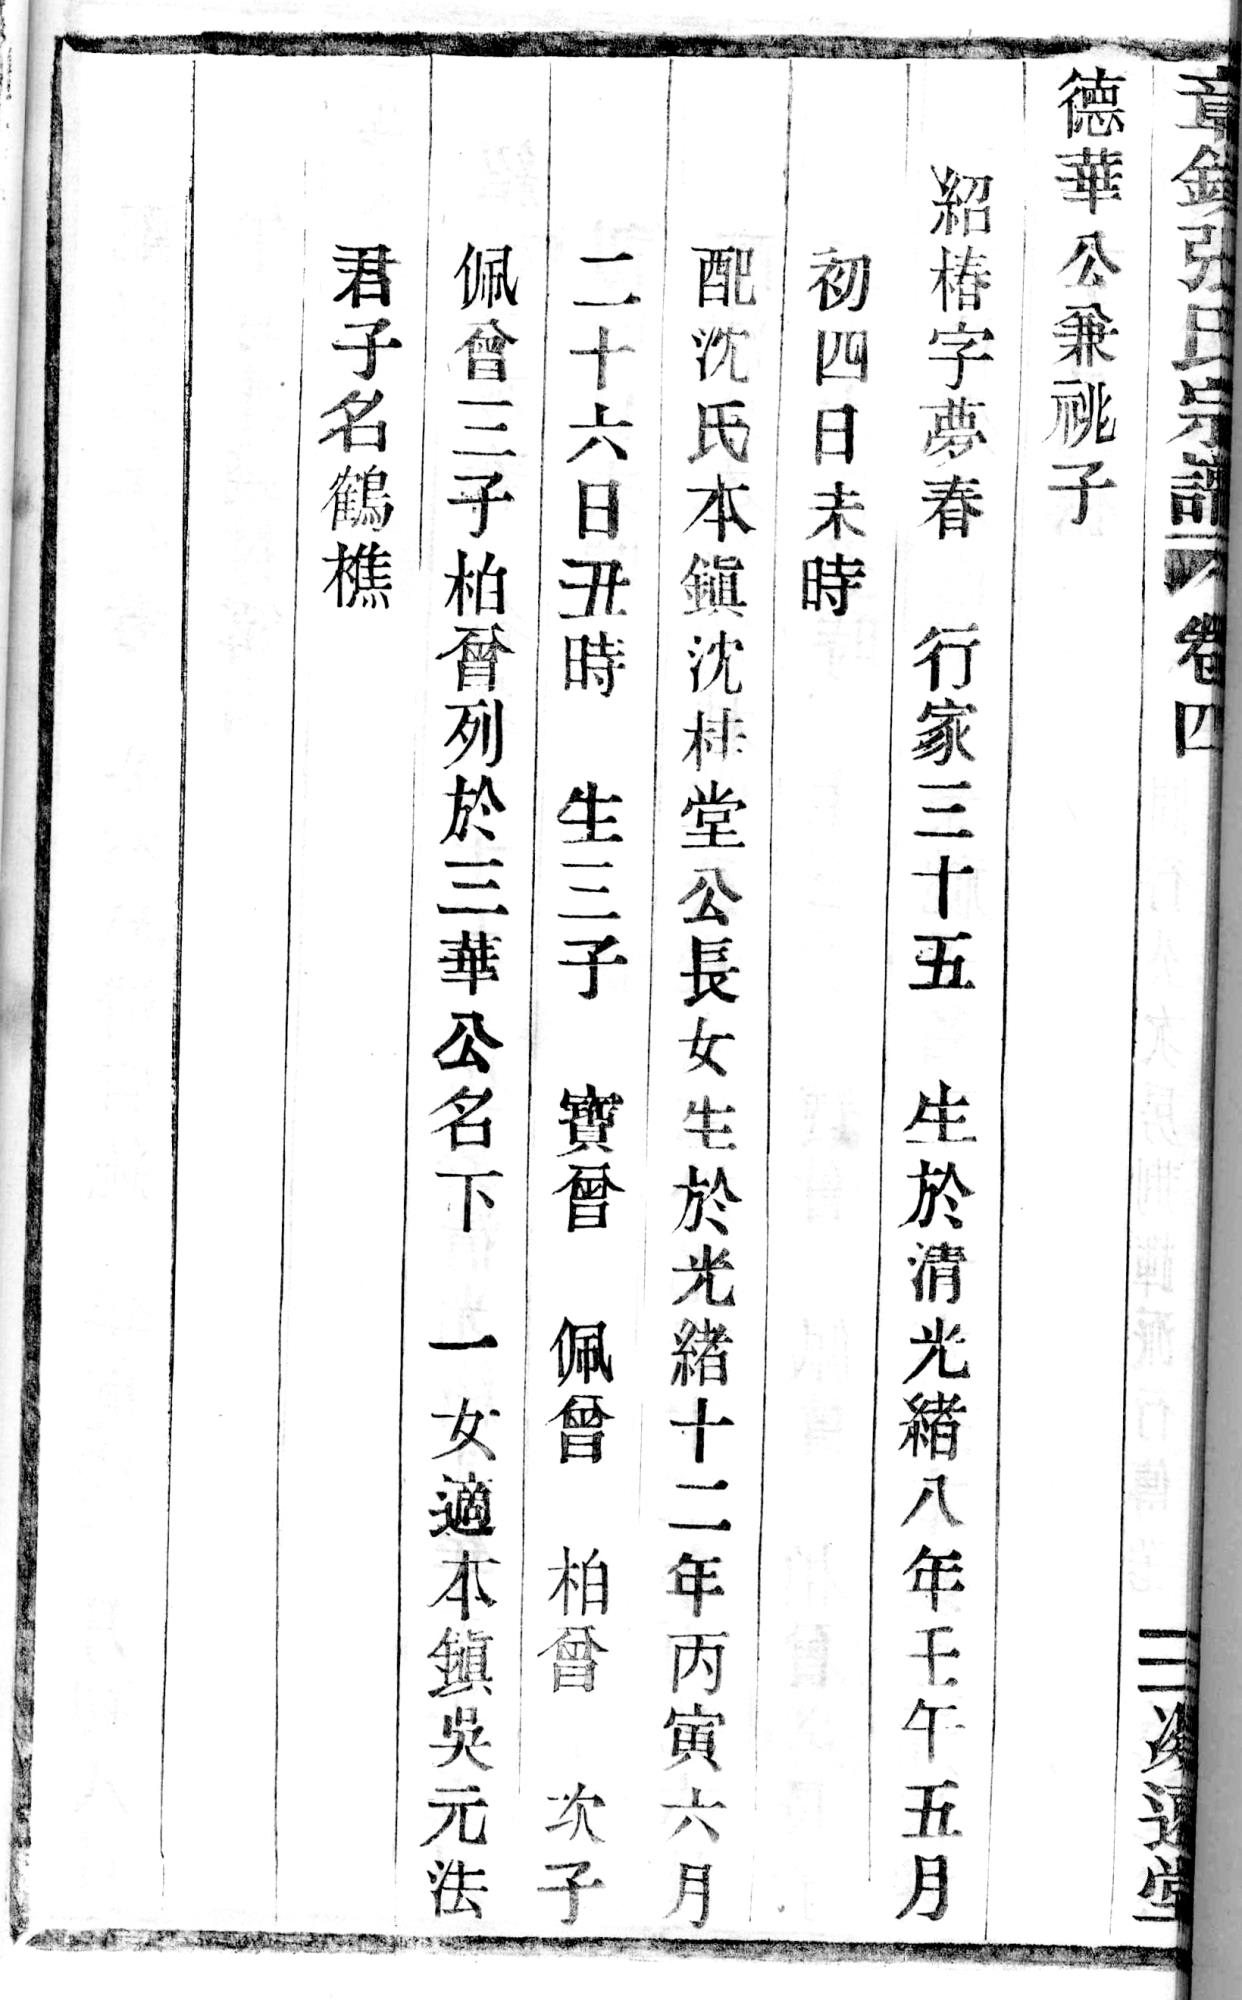 章鎮張氏宗譜 卷四 三 遠堂
德華公兼祧子
紹椿字夢春 行家三十五 生於清光緒八年壬午五月
初四日未時
配沈氏本鎮沈桂堂公長女生於光緒十二年丙寅六月
二十六日丑時 生三子 寶曾 佩曾 柏曾 次子
佩曾三子柏曾列於三華公名下 一女適本鎮吳元法
君子名鶴樵